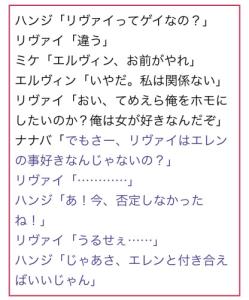 ハンジ「リヴァイってゲイなの？」
リヴァイ「違う」
ミケ「エルヴィン、お前がやれ」
エルヴィン「いやだ。私は関係ない」
リヴァイ「おい、てめえら俺をホモに
したいのか？俺は女が好きなんだぞ」
ナナバ「でもさー、リヴァイはエレン
の事好きなんじゃないの？」
リヴァイ「…………」
ハンジ「あ！今、否定しなかった
ね！」
リヴァイ「うるせぇ……」
ハンジ「じゃあさ、エレンと付き合え
ばいいじゃん」